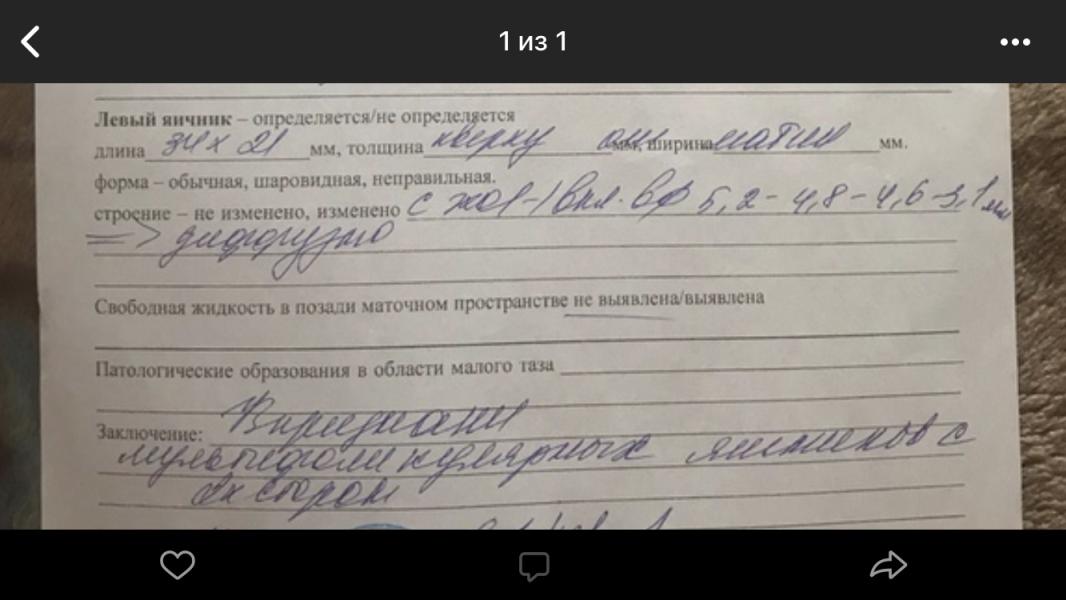 1 из 1
Левый яичник – определяется/не определяется
длина 34 х 21 мм, толщина кверху от мм, ширина матки мм.
форма – обычная, шаровидная, неправильная.
строение – не изменено, изменено с 5,2 - 4,8 - 4,6 - 3,1 мм
=> диффузно
Свободная жидкость в позади маточном пространстве не выявлена/выявлена
Патологические образования в области малого таза
Заключение:
мультифолликулярных яичников с
2х сторон